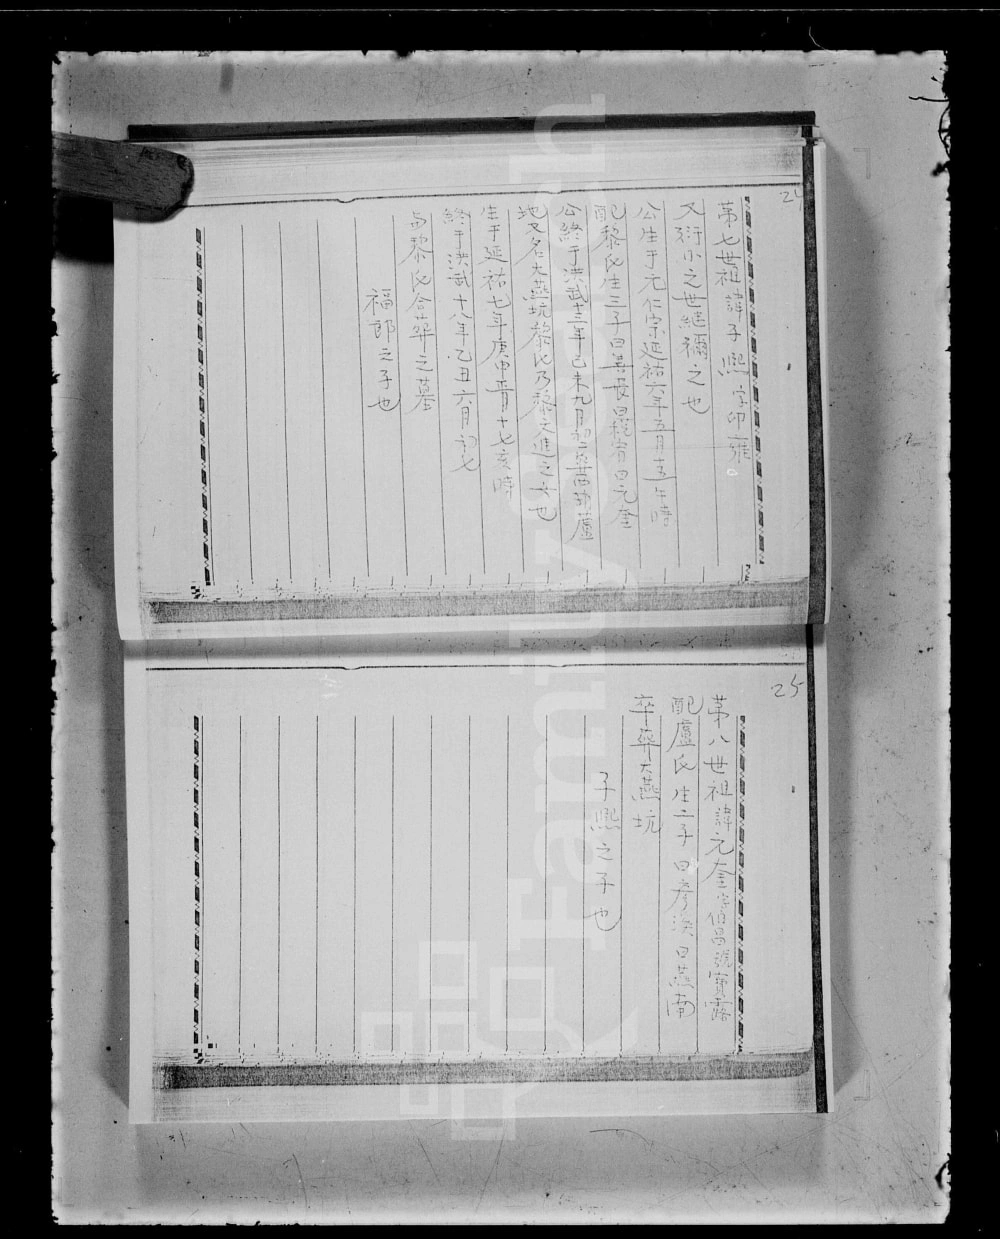 24
第七世祖諱子熙字印雍
又衍小之世継禰之也
公生于元仁宗延祐六年五月十五午時
配黎氏生三子曰善長曰元奎
公終于洪武十三年己未九月初二葬西葫蘆
地又名大燕坑黎氏乃黎文進之女也
生于延祐七年庚申十七亥時
終于洪武十八年乙丑六月初七
与黎氏合葬之墓
福郎之子也
25
第八世祖諱元奎字伯昌號寳露
配盧氏生二子曰彦渙曰燕南
卒葬大燕坑
子熙之子也
familysearch